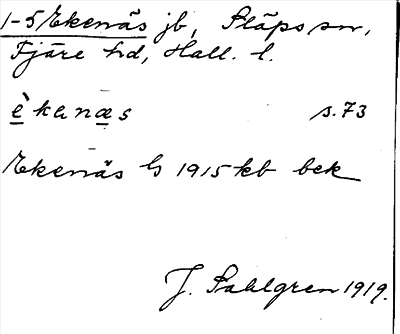 1-5 Ekenäs jb, Släps sn,
Fjäre hd, Hall. l.
è̠kanæ̠s s. 73
Ekenäs 1915 kb bek
J. Sahlgren 1919.